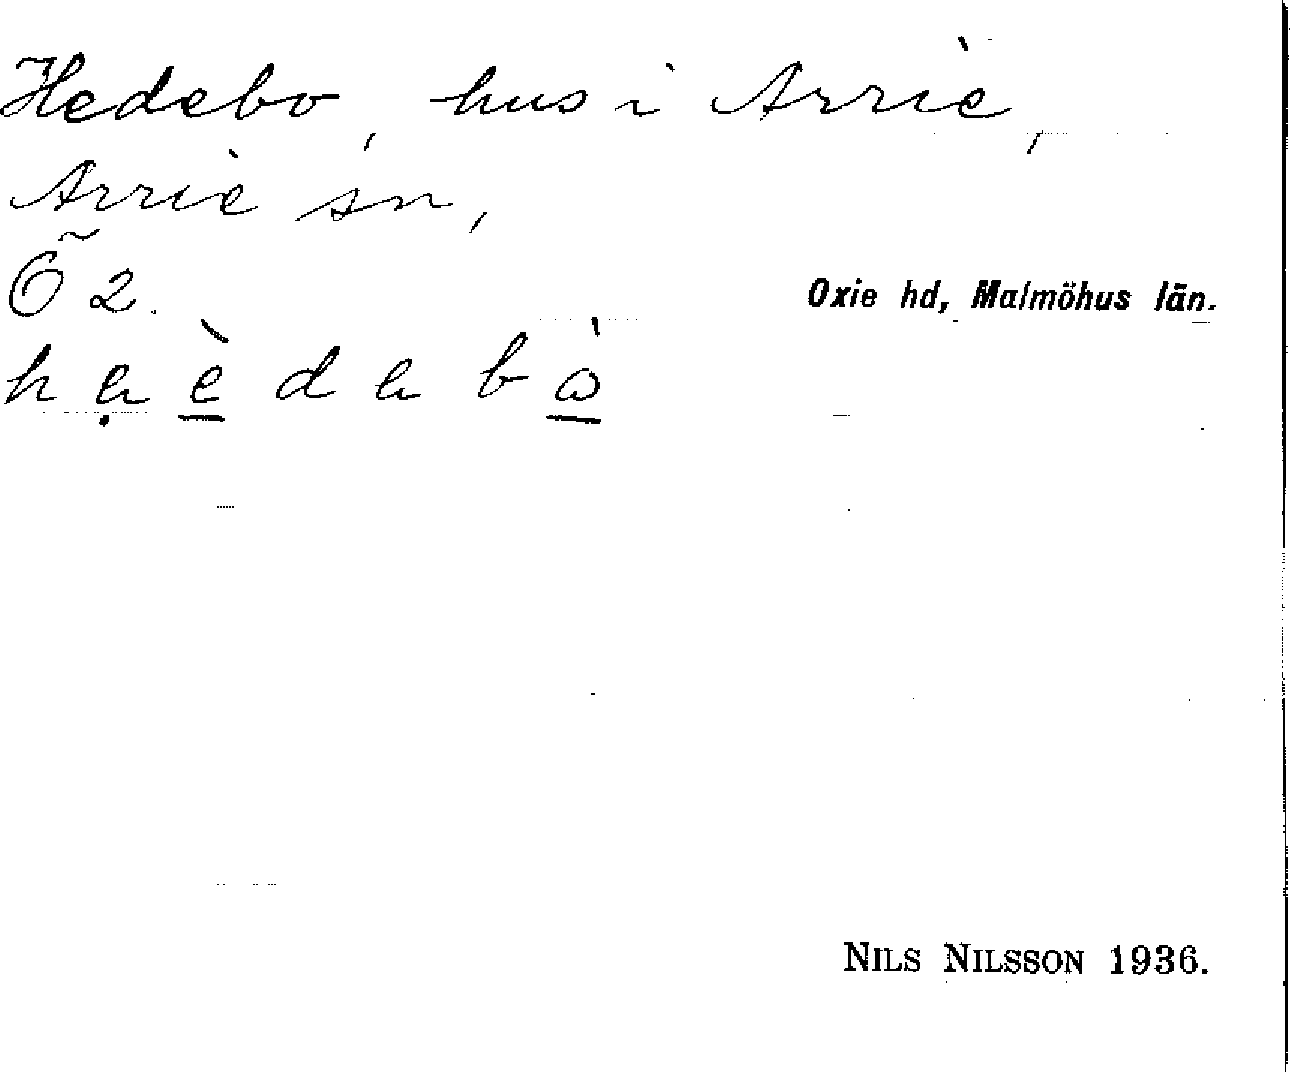 Hedebo, hus i Arrie,
Arrie sn,
Õ 2.
Oxie hd, Malmöhus län.
NILS NILSSON 1936.